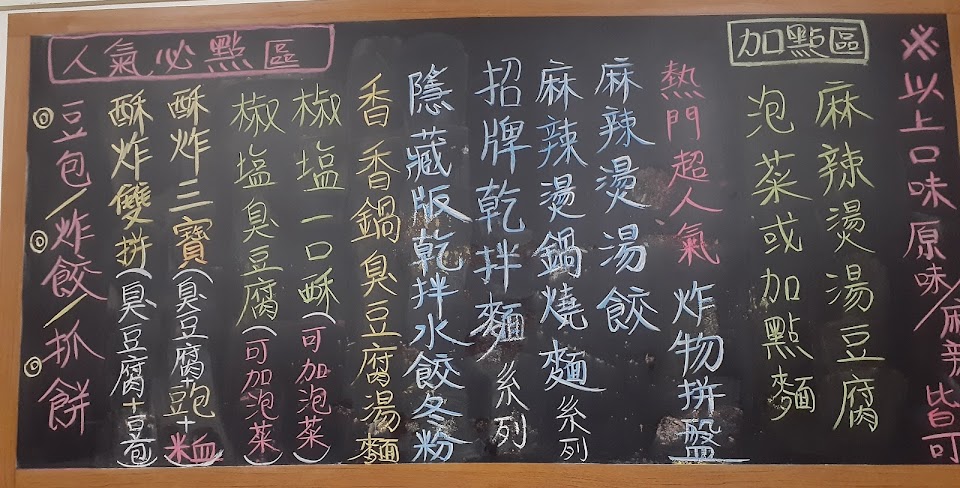 ※以上口味原味/麻辣皆可
加點區
麻辣燙湯豆腐
泡菜或加點麵
熱門超人氣 炸物拼盤
麻辣燙湯餃
麻辣燙鍋燒麵系列
招牌乾拌麵系列
隱藏版乾拌水餃冬粉
人氣必點區
香香鍋臭豆腐湯麵
椒塩一口酥(可加泡菜)
椒塩臭豆腐(可加泡菜)
酥炸三寶(臭豆腐+豆包+米血)
酥炸雙拼(臭豆腐+豆包)
◎豆包/◎炸餃/◎抓餅